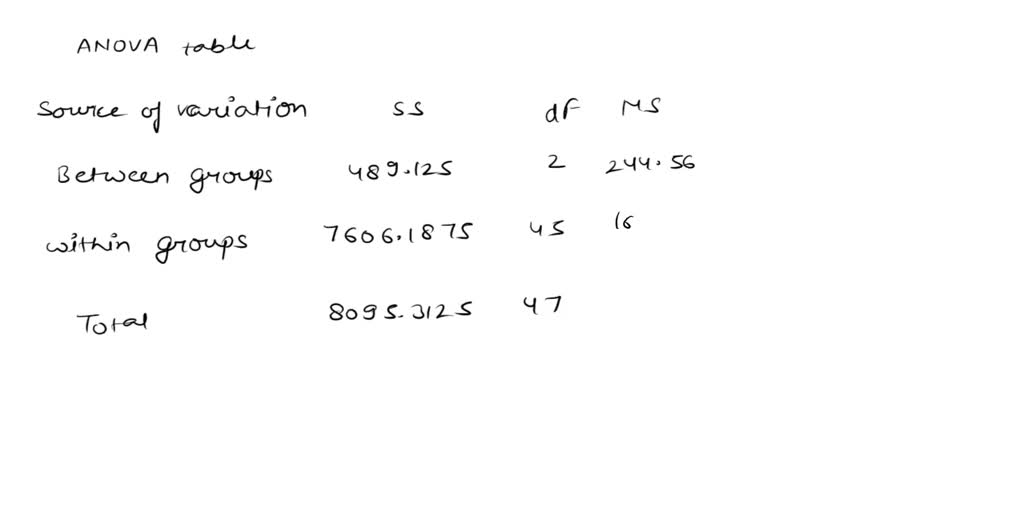 ANOVA table
Source of variation SS df MS
Between groups 489.125 2 244.56
within groups 7606.1875 45 16
Total 8095.3125 47